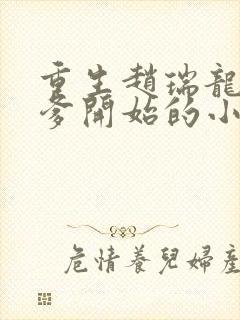 重生趙瑞龍
爹開始的小
危情養兒婦產